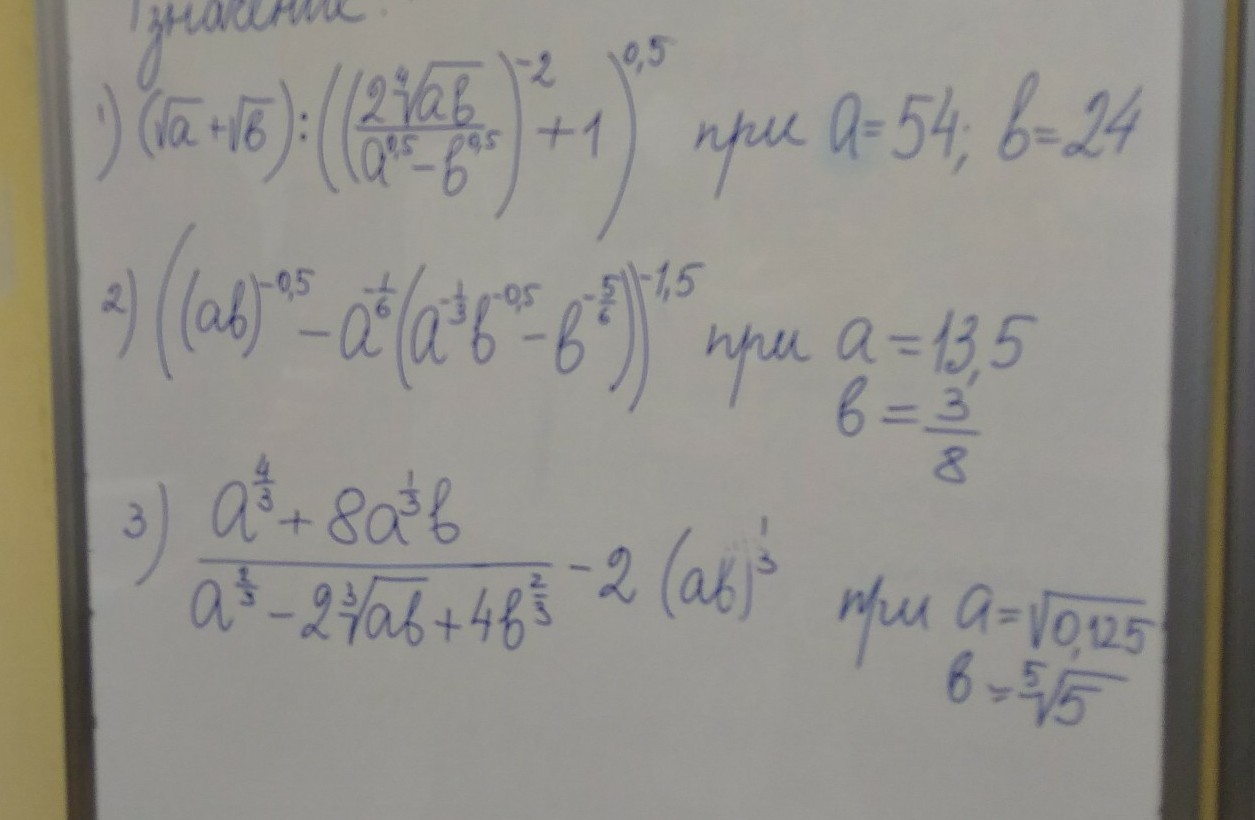 значение.
1) (√a + √b) : ((2∜ab / (a^0,5 − b^0,5))^−2 + 1)^0,5 при a = 54; b = 24
2) ((ab)^−0,5 − a^−1/6 (a^−1/3 b^−0,5 − b^−5/6))^−1,5 при a = 13,5
b = 3/8
3) (a^4/3 + 8a^1/3 b) / (a^2/3 − 2∛ab + 4b^2/3) − 2 (ab)^1/3 при a = √0,125
b = ⁵√5